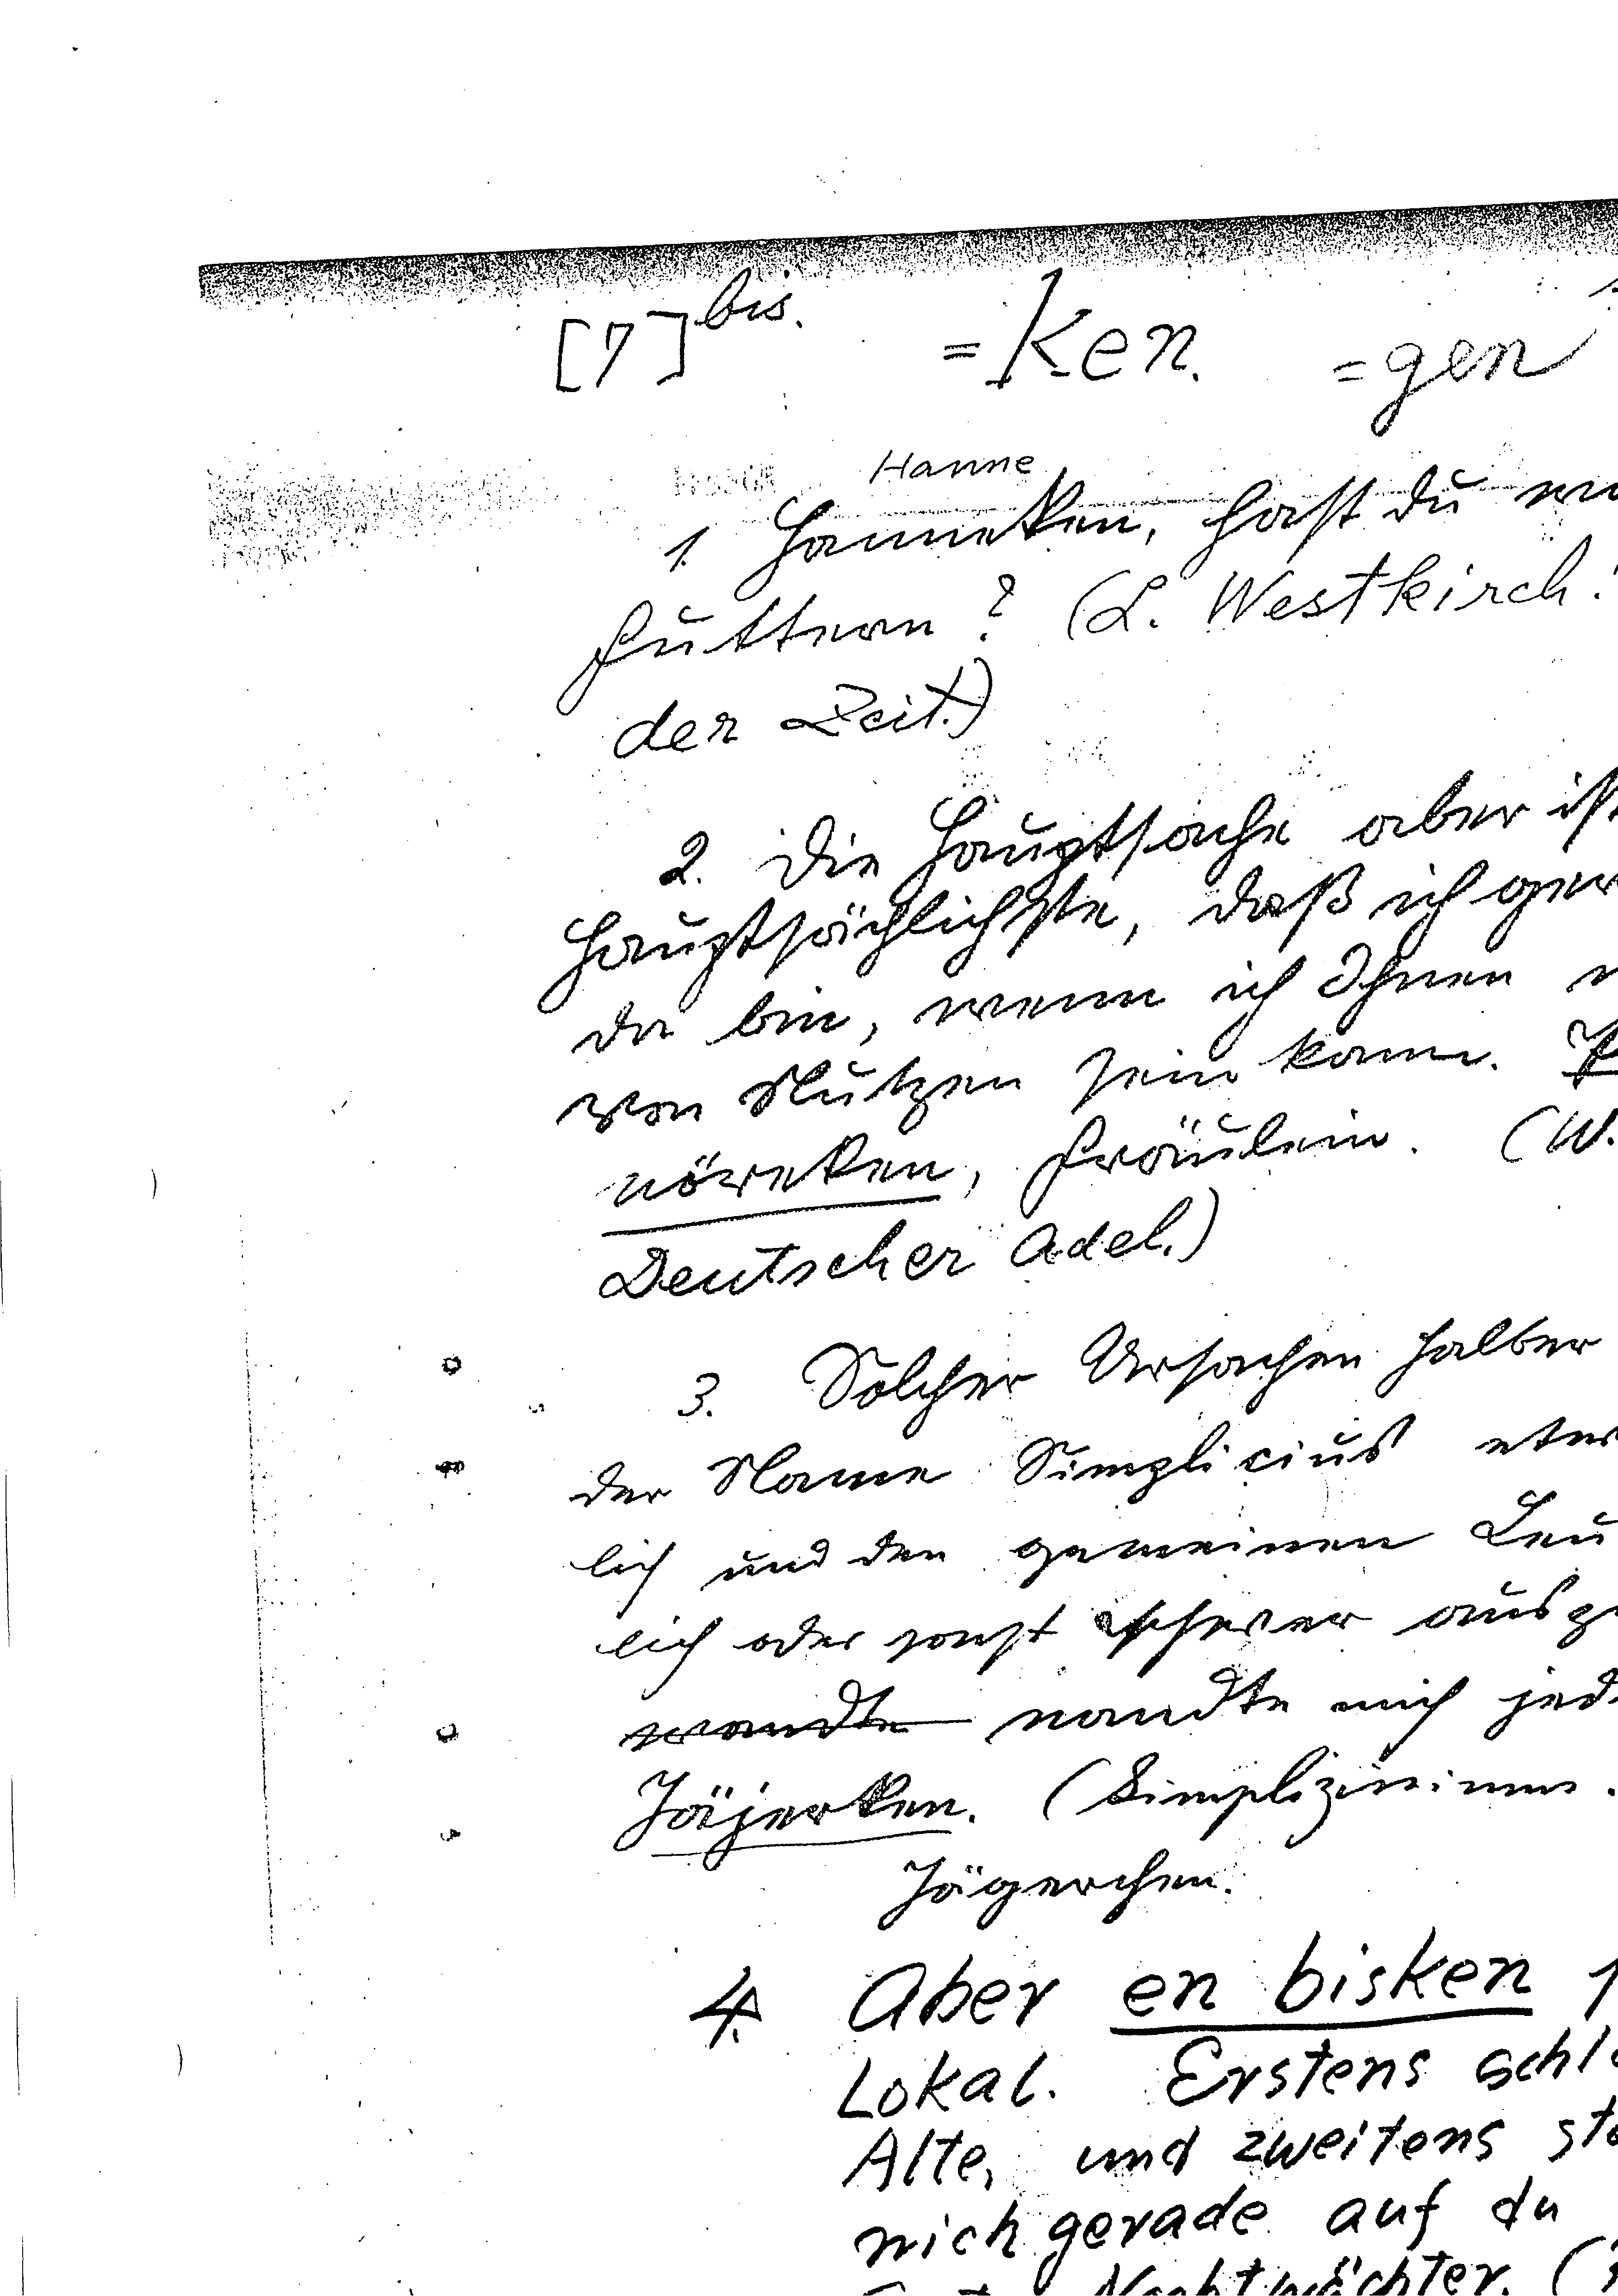 [7] bis. =Ken. =gen
Hanne
1. Hanneken, hast du
Futtern? (L. Westkirch:
der Zeit.)
2. Die Hauptsache aber ist
Hauptsächlichste, daß ich ger
da bin, wenn ich Ihnen
von Nutzen sein kann.
nöreken, Fräulein. (W.
Deutscher Adel.)
3. Solcher Ursachen halber
der Name Simplicius
lich und den gemeinen Leu
lich oder sonst schwer ausz
wandte nandte mich jed
Jäjerken. (Simplizissimus.
Jägerchen.
4. Aber en bisken
Lokal. Erstens schl
Alte, und zweitens ste
mich gerade auf du
Nachtwächter. (